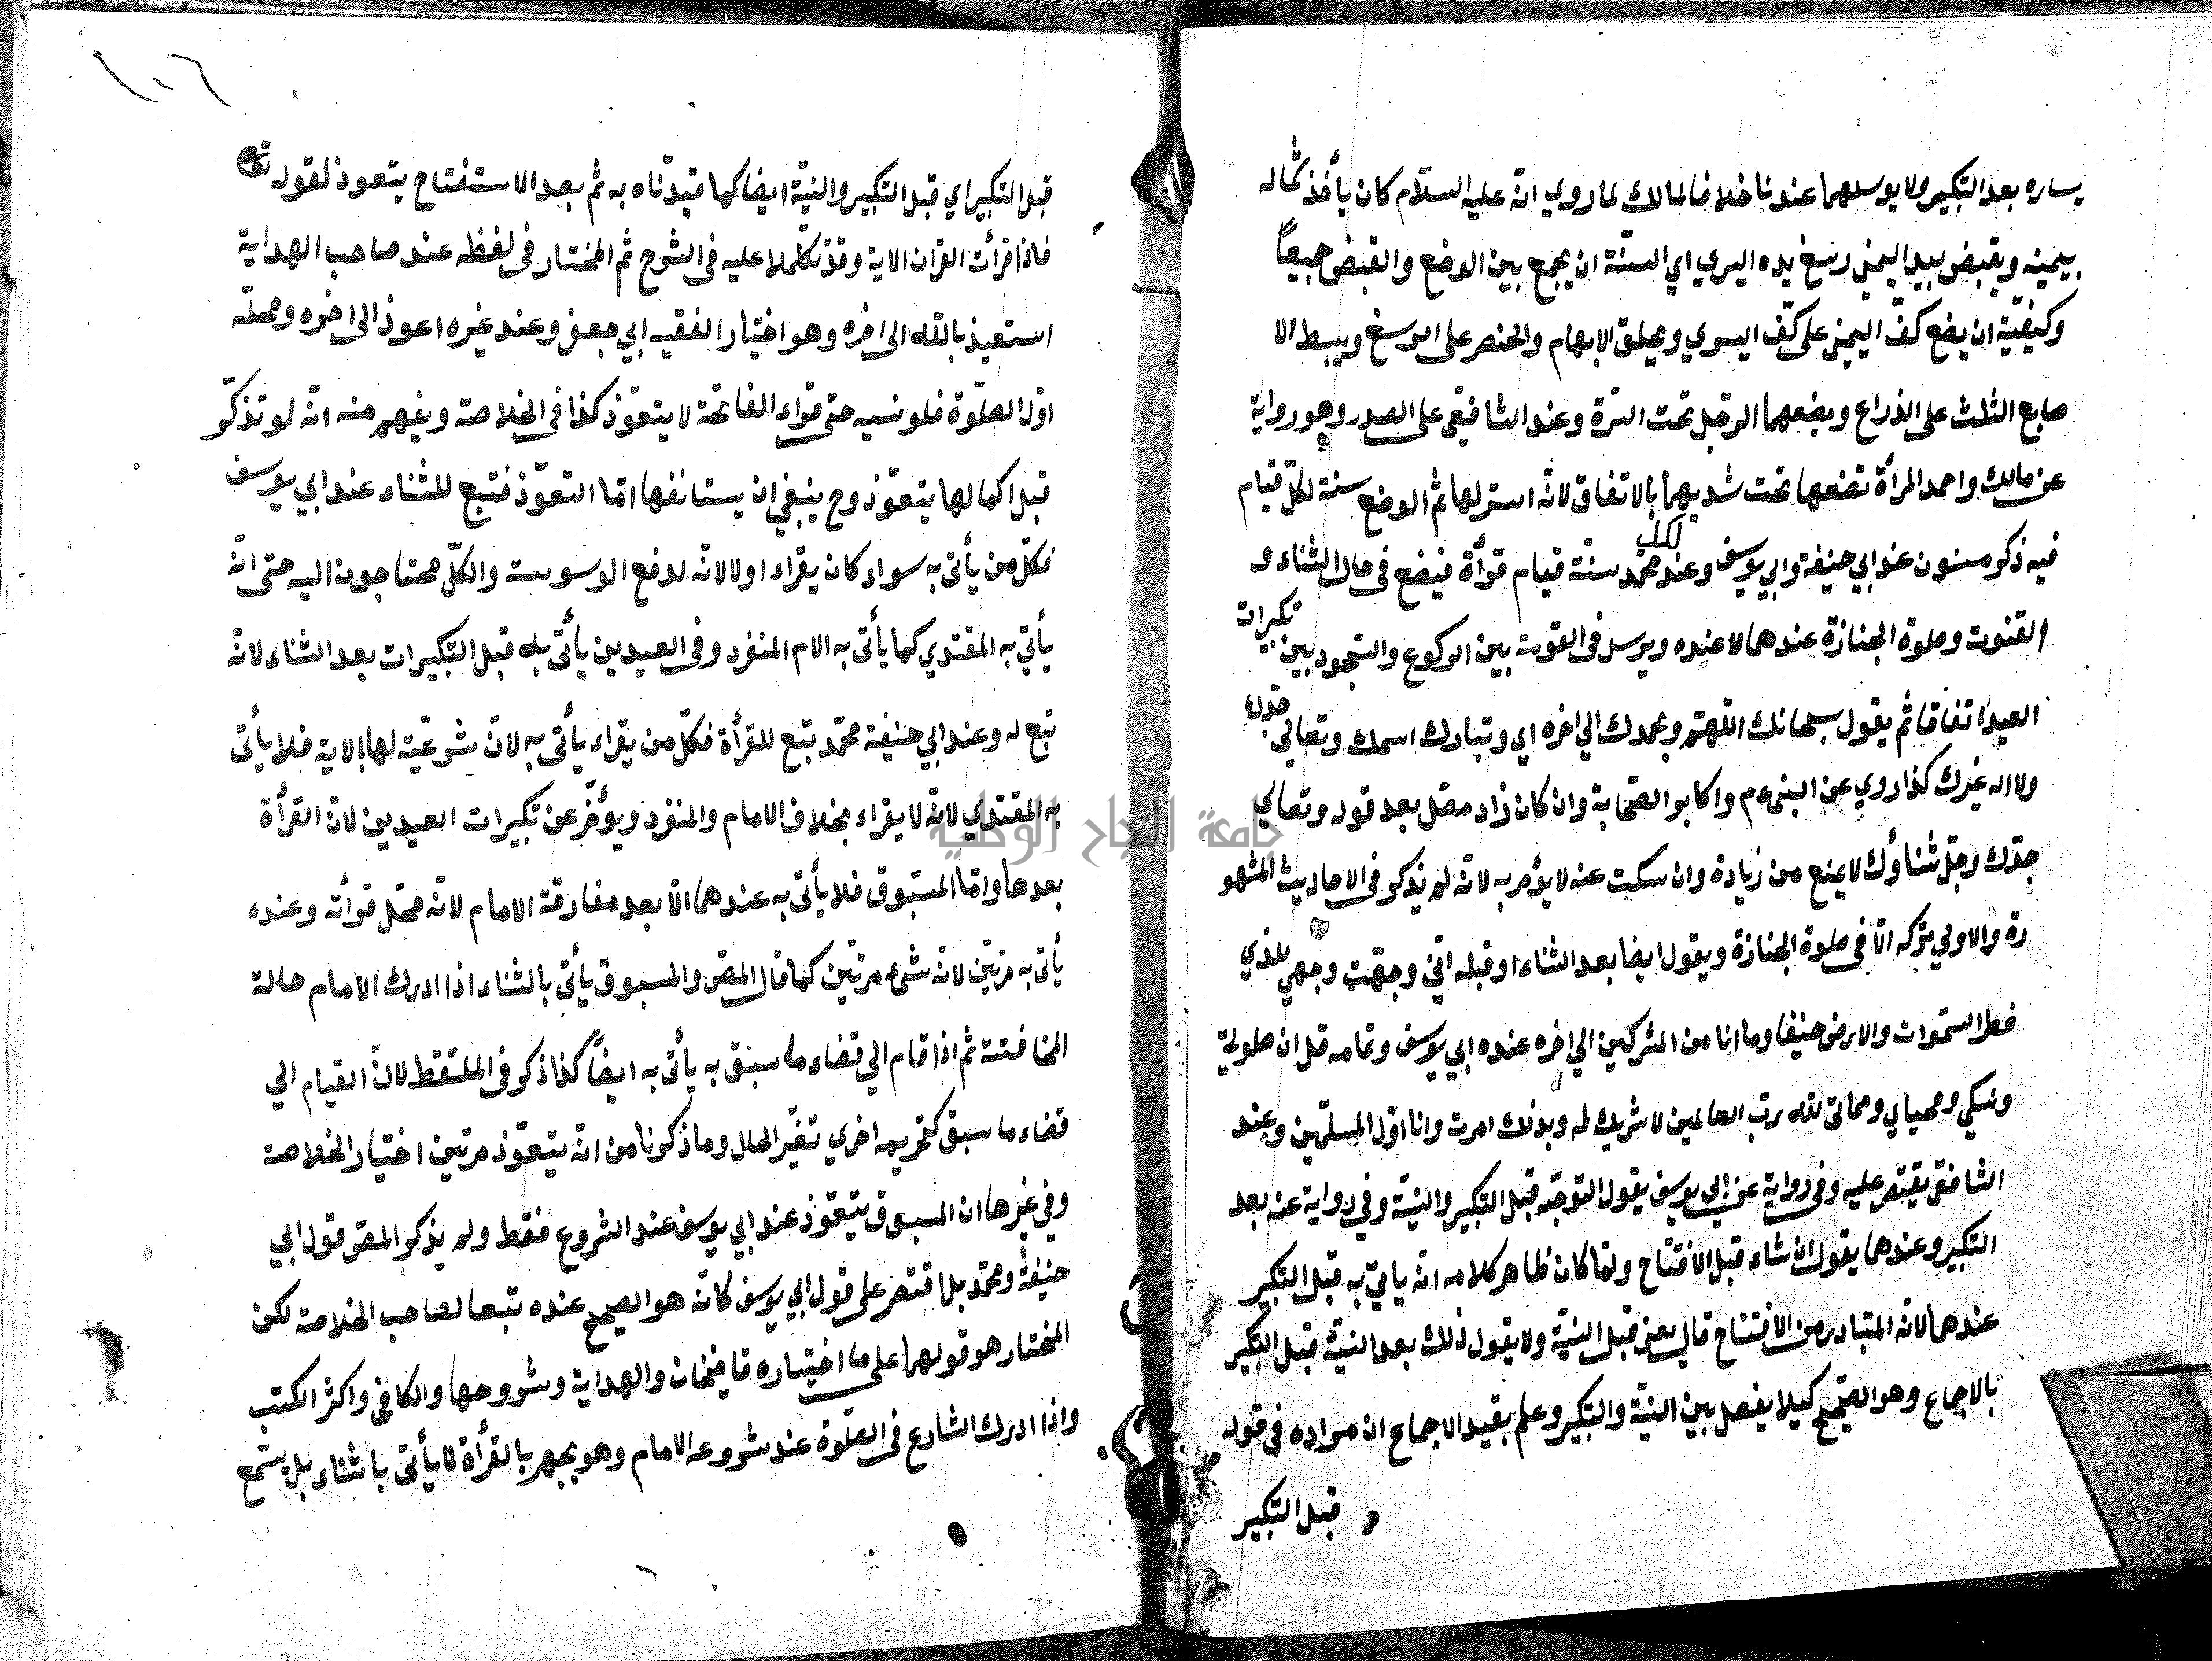 يساره بعد التكبير ولا يرسلهما عندنا خلافا لمالك لما روي انه عليه السلام كان يأخذ شماله
بيمينه ويقبض بيد اليمنى رسغ يده اليسري اي السنة ان يجمع بين الوضع والقبض جميعاً
وكيفية ان يضع كف اليمنى على كف اليسري ويحلق الابهام والخنصر على الرسغ ويبسط الا
صابع الثلث على الذراع ويضعهما الرجل تحت السرة وعند الشافعي على الصدر وهو رواية
عن مالك واحمد المرأة تضعها تحت ثدييهما بالاتفاق لانه استر لها ثم الوضع سنة لكل قيام
فيه ذكر مسنون عند ابي حنيفة وابي يوسف وعند محمد سنة قيام قرأة فيضع في حال الثناء و
القنوت وصلوة الجنازة عندهما لا عنده ويرسل في القومة بين الركوع والسجود بين تكبيرات
العيد اتفاقا ثم يقول سبحانك اللهم وبحمدك الى اخره اي وتبارك اسمك وتعالي جدك
ولا اله غيرك كذا روي عن النبي عم واكابر الصحابة وان كان زاد مصل بعد قوله وتعالي
جدك وجل ثناؤك لا يمنع من زيادة وان سكت عنه لا يؤمر به لانه لم يذكر في الاحاديث المشهو
رة والاولي تركه الا في صلوة الجنازة ويقول ايضا بعد الثناء او قبله اني وجهت وجهي للذي
فطر السموات والارض حنيفا وما انا من المشركين الي اخره عنده ابي يوسف وتمامه قل ان صلوتي
ونسكي ومحياي ومماتي لله رب العالمين لا شريك له وبذلك امرت وانا اول المسلمين وعند
الشافعي يقتصر عليه وفي رواية عن ابي يوسف يقول التوجه قبل التكبير والنية وفي رواية عنه بعد
التكبير وعندهما يقول ان شاء قبل الافتتاح ولما كان ظاهر كلامه انه ياتي به قبل التكبير
عندهما لانه المتبادر من الافتتاح قال يعني قبل النية ولا يقول ذلك بعد النية قبل التكبير
بالاجماع وهو الصحيح كيلا يفصل بين النية والتكبير وعلم بقيد الاجماع ان مراده في قوله
قبل التكبير
١٠٦
قبل التكبير اي قبل التكبير والنية ايضا كما قيدناه به ثم بعد الاستفتاح يتعوذ لقوله تعالى
فاذا قرأت القران الاية وقد تكلملا عليه في الشرح ثم المختار في لفظه عند صاحب الهداية
استعيذ بالله الى اخره وهو اختيار الفقيه ابي جعفر وعند غيره اعوذ الى اخره ومحله
اول الصلوة فلو نسيه حتى قراء الفاتحة لا يتعوذ كذا في الخلاصة ويفهم منه انه لو تذكر
قبل اكمالها يتعوذ وح ينبغي ان يستانفها اما التعوذ فتبع للثناء عند ابي يوسف
فكل من يأتي به سواء كان يقراء اولا لانه لدفع الوسوسة والكل محتاجون اليه حتى انه
يأتي به المقتدي كما يأتي به الامام المنفرد وفي العيدين يأتي به قبل التكبيرات بعد الثناء لانه
تبع له وعند ابي حنيفة محمد تبع للقرأة فكل من يقراء يأتي به لان شرعيته لها بالاية فلا يأتي
به المقتدي لانه لا يقراء بخلاف الامام والمنفرد ويؤخر عن تكبيرات العيدين لان القرأة
بعدها واما المسبوق فلا يأتي به عندهما الا بعد مفارقة الامام لانه محل قرأته وعنده
يأتي به مرتين لانه شيء مرتين كما قال المص والمسبوق يأتي بالثناء اذا ادرك الامام حالة
المخافتة ثم اذا قام الي قضاء ما سبق به يأتي به ايضاً كذا ذكر في الملتقط لان القيام الي
قضاء ما سبق كتحريمه اخري تغير الحال وما ذكرنا من انه يتعوذ مرتين اختيار الخلاصة
وفي غيرها ان المسبوق يتعوذ عند ابي يوسف عند الشروع فقط ولم يذكر المص قول ابي
حنيفة ومحمد بل اقتصر على قول ابي يوسف كانه هو الصحيح عنده تبعا لصاحب الخلاصة لكن
المختار هو قولهما على ما اختياره قاضيخان والهداية وشروحها والكافي واكثر الكتب
واذا ادرك الشارع في الصلوة عند شروعه الامام وهو يجهر بالقرأة لا يأتي بالثناء بل يستمع
جامعة النجاح الوطنية